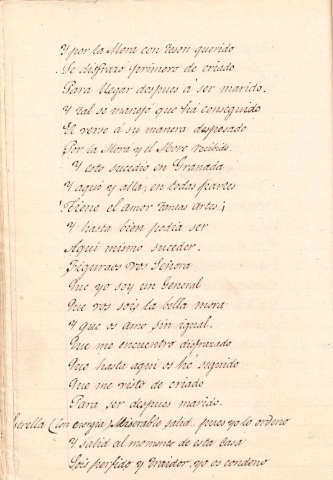 Y por la Mora con razon querido
Se disfrazo primero de criado
Para llegar despues á ser marido.
Y tal se manejó que há conseguido
El verse á su manera desposado
Por la Mora y el Moro recibido.
Y esto sucedio en Granada
Y aquí y alla, en todas partes
Tiene el amor tantas artes;
Y hasta bien podia ser
Aqui mismo suceder.
Figuraos vos Señora
Que yo soy un General
Que vos sois la bella mora
Y que os amo sin igual.
Que me encuentro disfrazado
Que hasta aqui os hé seguido
Que me visto de criado
Para ser despues marido.
Estrella (con energia) Miserable salid, pues yo lo ordeno
Y salid al momento de esta casa
Sois perfido y traidor, yo os condeno